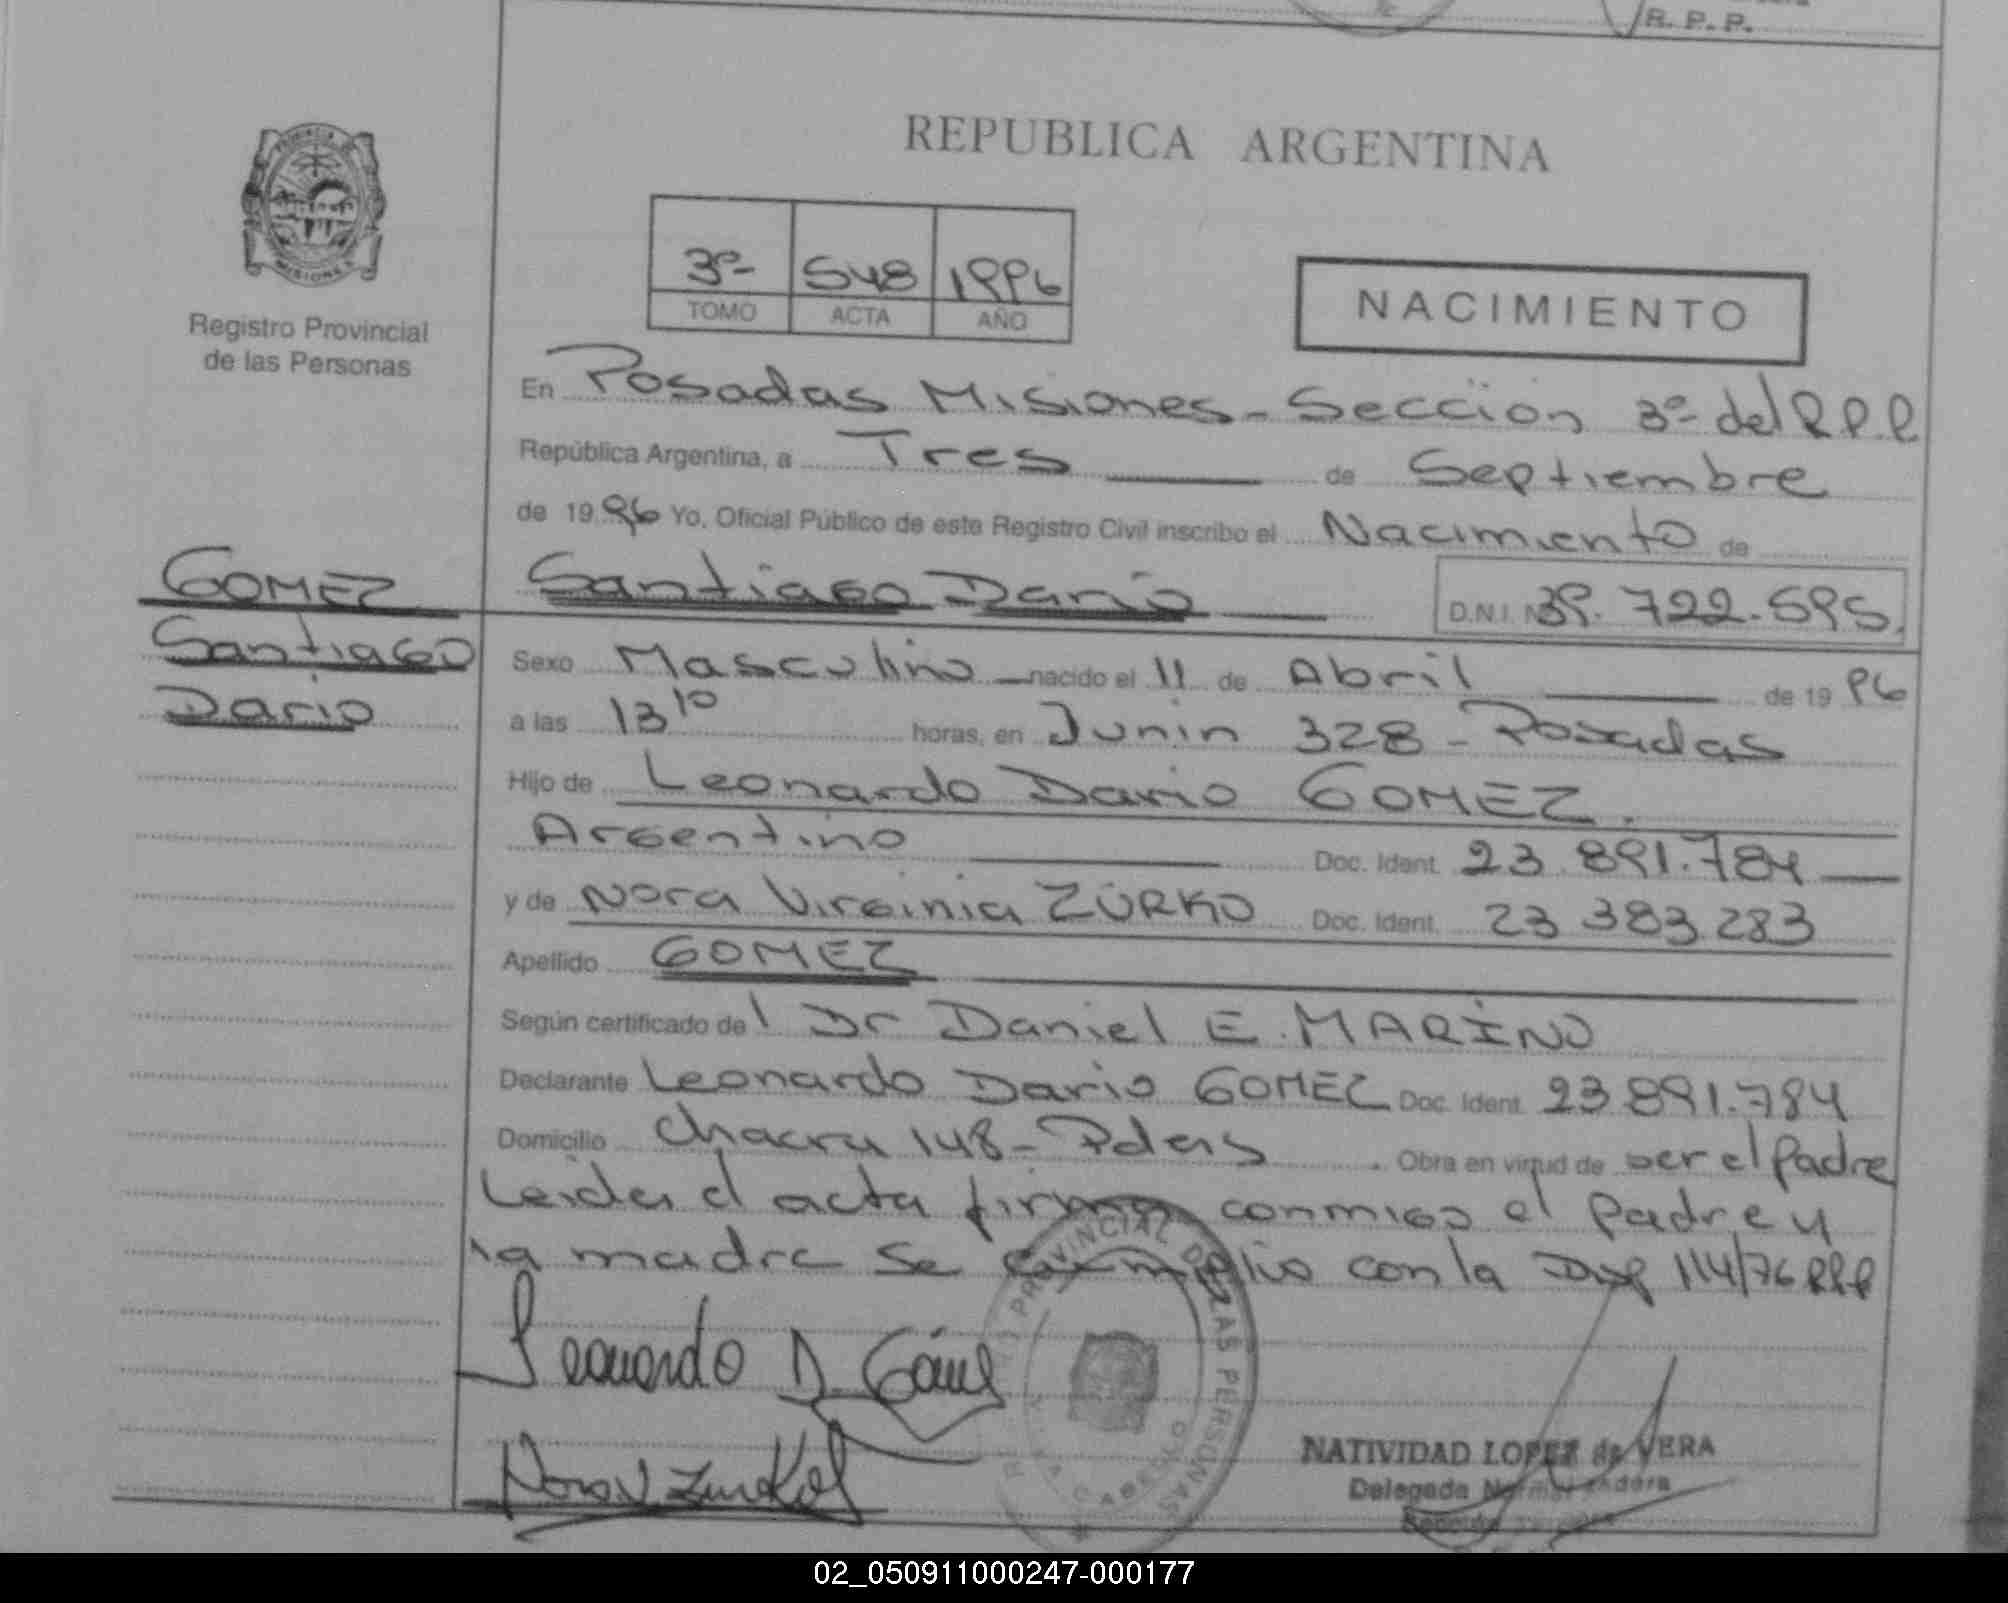 R. P. P.
PROVINCIA DE
MISIONES
Registro Provincial
de las Personas
REPUBLICA ARGENTINA
3º- 548 1996
TOMO ACTA AÑO
NACIMIENTO
En Posadas Misiones - Sección 3º- del R.P.P.
República Argentina, a Tres de Septiembre
de 1996 Yo, Oficial Público de este Registro Civil inscribo el Nacimiento de
GOMEZ Santiago Dario D.N.I. Nº 39.722.595.
Santiago
Dario
Sexo Masculino nacido el 11 de Abril de 1996
a las 13 10 horas, en Junin 328 - Posadas
Hijo de Leonardo Dario GOMEZ.
Argentino Doc. Ident. 23.891.784
y de Nora Virginia ZURKO Doc. Ident. 23 383 283
Apellido GOMEZ
Según certificado del Dr Daniel E. MARINO
Declarante Leonardo Dario GOMEZ Doc. Ident. 23 891.784
Domicilio Chacra 148 - Pdas Obra en virtud de ser el Padre
Leida el acta firma conmigo el Padre y
la madre se cumplio con la Disp 114/76 RPP
Leonardo D. Gómez
Nora V Zurko
PROVINCIAL DE LAS PERSONAS
NATIVIDAD LOPEZ de VERA
Delegada Normalizadora
02_050911000247-000177